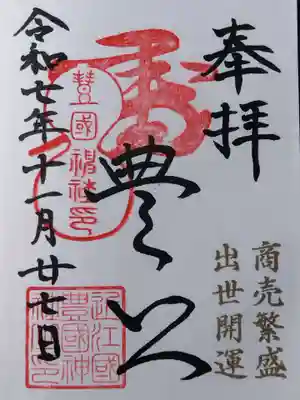 奉拝
商売繁盛
出世開運
豊公
豊國神社印
令和七年十一月廿七日
近江國
豊國神
社印